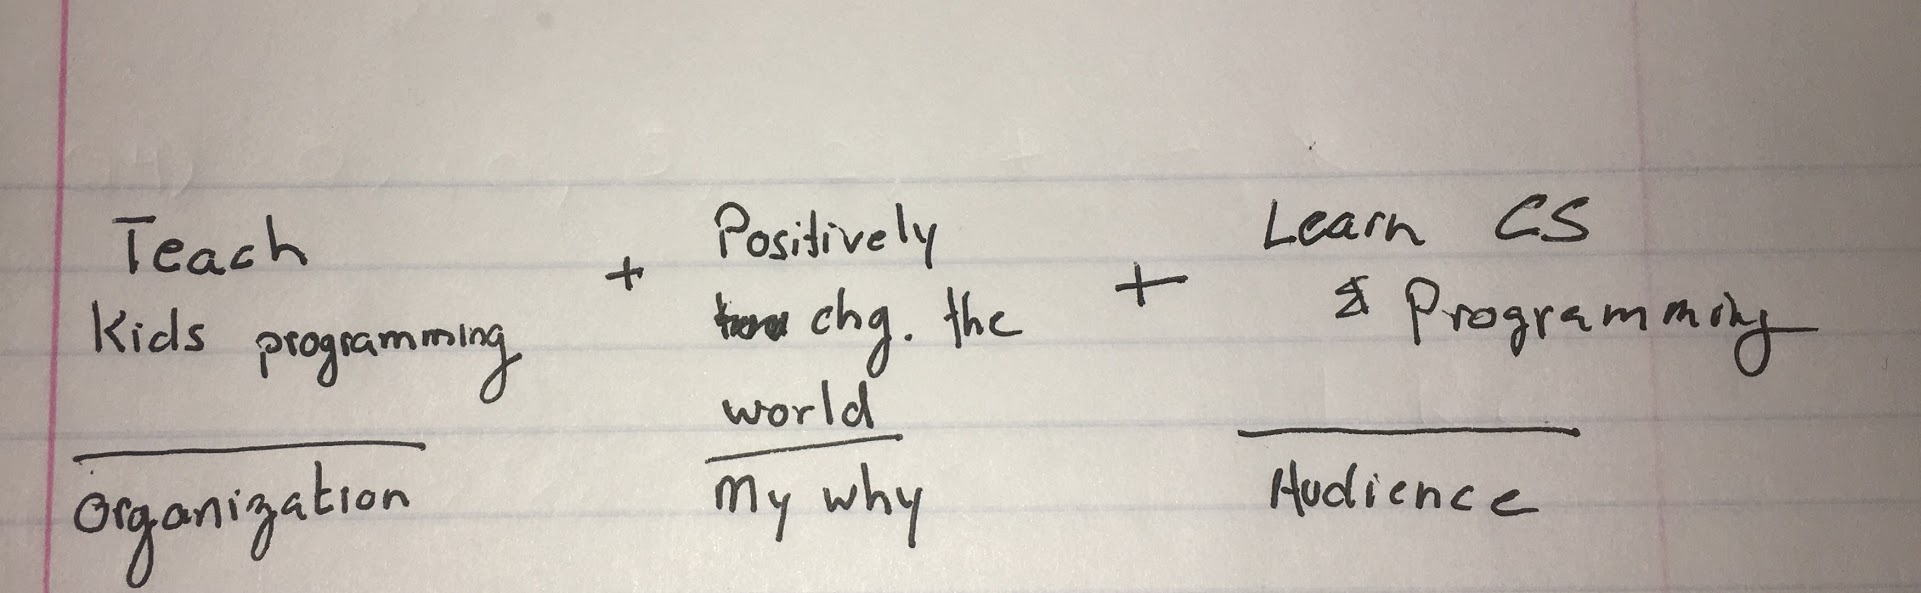 Teach
Kids programming
Organization
+
Positively
chg. the
world
My why
+
Learn CS
& Programming
Audience